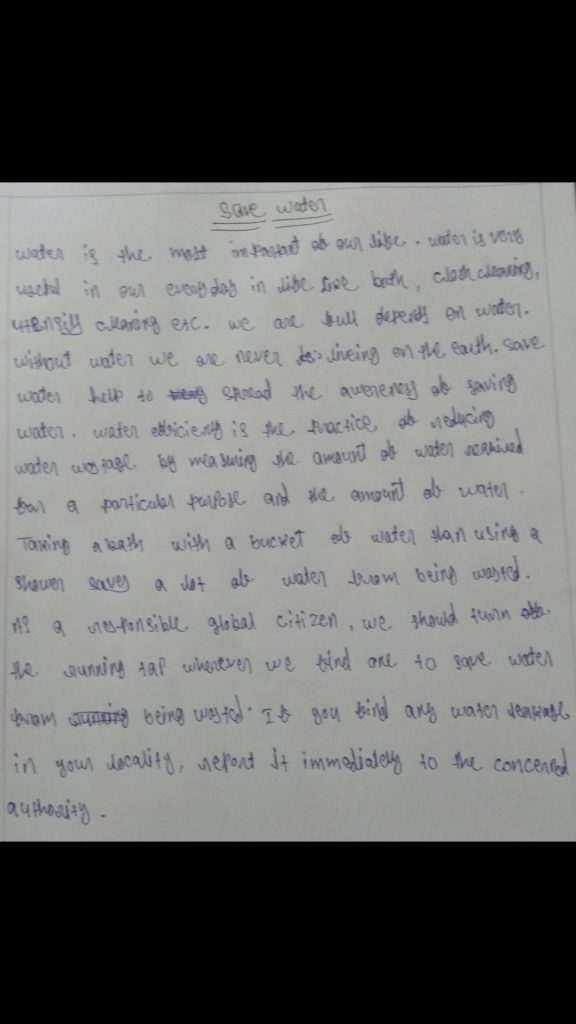 Save water
water is the most important of our life. water is very
useful in our everyday in life like bath, cloth cleaning,
utensils cleaning etc. we are full depends on water.
without water we are never liveing on the earth. save
water help to spread the awereness of saving
water. water efficiency is the practice of reducing
water wastage by measuring the amount of water required
for a particular purpose and the amount of water.
Taking a bath with a bucket of water than using a
shower saves a lot of water from being wasted.
As a responsible global citizen, we should turn off
the running tap wherever we find one to save water
from being wasted. If you find any water leakage
in your locality, report It immediately to the concerned
authority.